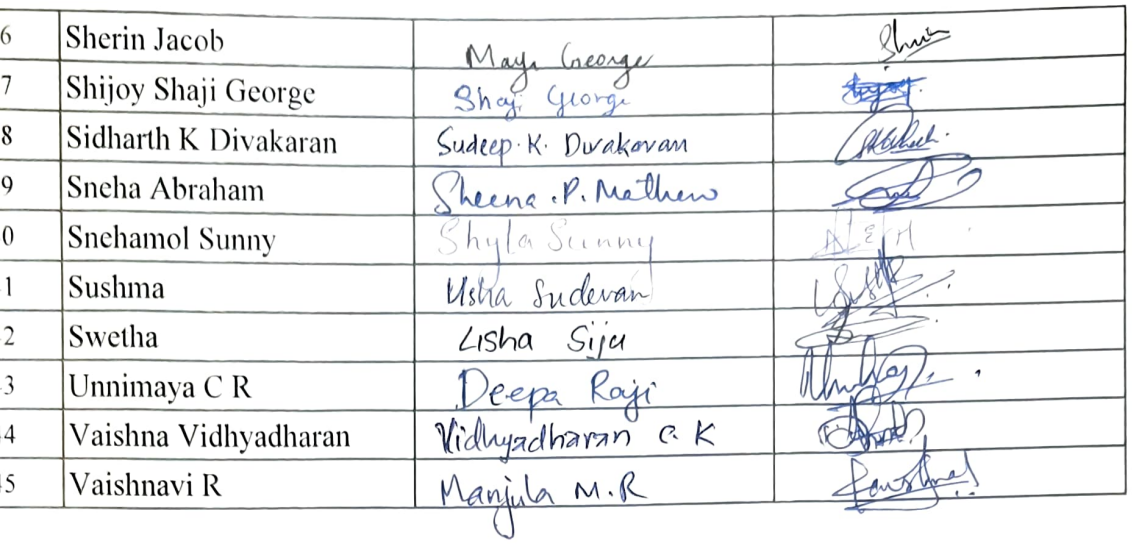 6 Sherin Jacob Maya George
7 Shijoy Shaji George Shaji George
8 Sidharth K Divakaran Sudeep. K. Divakaran
9 Sneha Abraham Sheena .P. Mathew
0 Snehamol Sunny Shyla Sunny
1 Sushma Usha Sudevan
2 Swetha Lisha Siju
3 Unnimaya C R Deepa Raji
4 Vaishna Vidhyadharan Vidhyadharan C. K
5 Vaishnavi R Manjula M.R